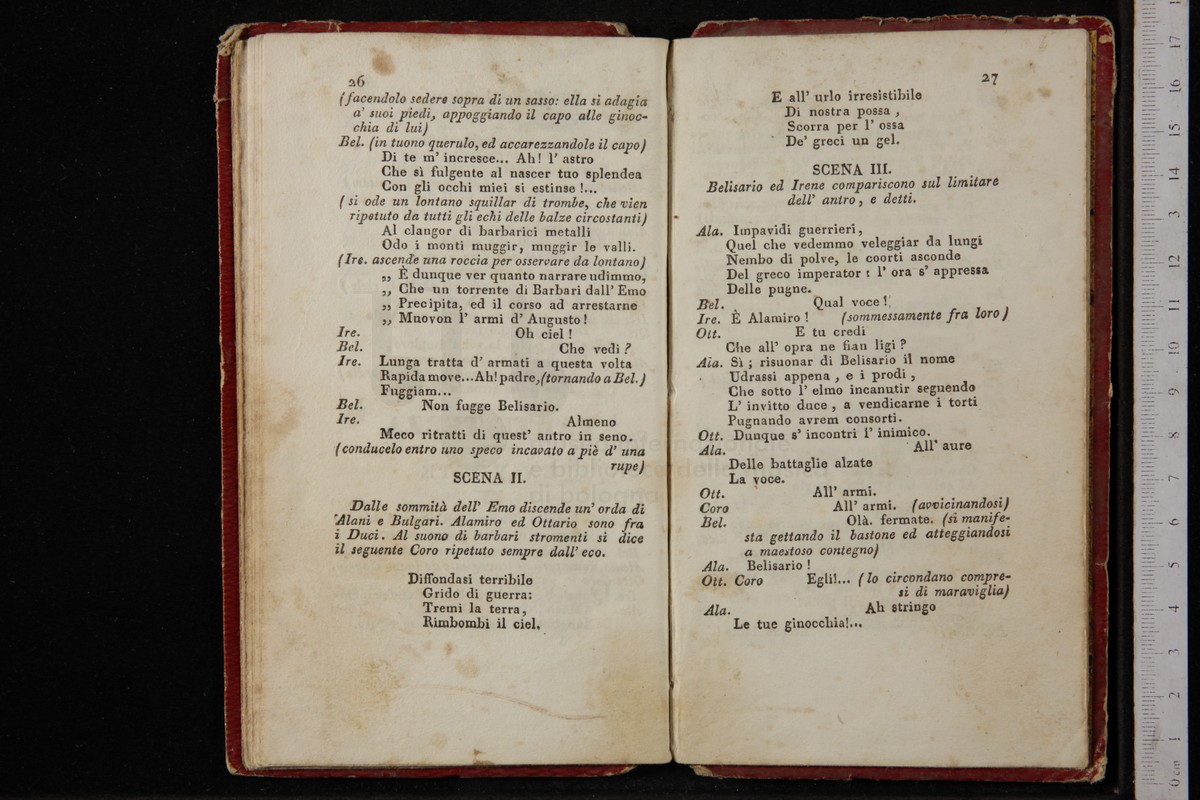 26
(facendolo sedere sopra di un sasso: ella si adagia
a' suoi piedi, appoggiando il capo alle ginoc-
chia di lui)
Bel. (in tuono querulo, ed accarezzandole il capo)
Di te m' incresce... Ah! l' astro
Che sì fulgente al nascer tuo splendea
Con gli occhi miei si estinse!...
(si ode un lontano squillar di trombe, che vien
ripetuto da tutti gli echi delle balze circostanti)
Al clangor di barbarici metalli
Odo i monti muggir, muggir le valli.
(Ire. ascende una roccia per osservare da lontano)
„ È dunque ver quanto narrare udimmo,
„ Che un torrente di Barbari dall' Emo
„ Precipita, ed il corso ad arrestarne
„ Muovon l' armi d' Augusto!
Ire. Oh ciel!
Bel. Che vedi?
Ire. Lunga tratta d' armati a questa volta
Rapida move...Ah! padre,(tornando a Bel.)
Fuggiam...
Bel. Non fugge Belisario.
Ire. Almeno
Meco ritratti di quest' antro in seno.
(conducelo entro uno speco incavato a piè d' una
rupe)
SCENA II.
Dalle sommità dell' Emo discende un' orda di
Alani e Bulgari. Alamiro ed Ottario sono fra
i Duci. Al suono di barbari stromenti si dice
il seguente Coro ripetuto sempre dall' eco.
Diffondasi terribile
Grido di guerra:
Tremi la terra,
Rimbombi il ciel.
27
E all' urlo irresistibile
Di nostra possa,
Scorra per l' ossa
De' greci un gel.
SCENA III.
Belisario ed Irene compariscono sul limitare
dell' antro, e detti.
Ala. Impavidi guerrieri,
Quel che vedemmo veleggiar da lungi
Nembo di polve, le coorti asconde
Del greco imperator: l' ora s' appressa
Delle pugne.
Bel. Qual voce!
Ire. È Alamiro! (sommessamente fra loro)
Ott. E tu credi
Che all' opra ne fian ligi?
Ala. Sì; risuonar di Belisario il nome
Udrassi appena, e i prodi,
Che sotto l' elmo incanutir seguendo
L' invitto duce, a vendicarne i torti
Pugnando avrem consorti.
Ott. Dunque s' incontri l' inimico.
Ala. All' aure
Delle battaglie alzate
La voce.
Ott. All' armi.
Coro All' armi. (avvicinandosi)
Bel. Olà. fermate. (si manife-
sta gettando il bastone ed atteggiandosi
a maestoso contegno)
Ala. Belisario!
Ott. Coro Egli!... (lo circondano compre-
si di maraviglia)
Ala. Ah stringo
Le tue ginocchia!...